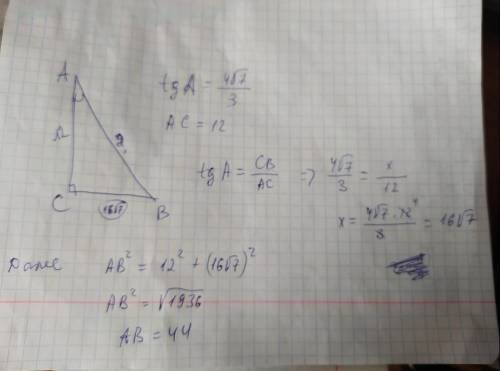 A
12
?
C
16√7
B
tg A = 4√7/3
AC = 12
tg A = CB/AC => 4√7/3 = x/12
x = 4√7 · 12⁴/3 = 16√7
Далее
AB² = 12² + (16√7)²
AB² = √1936
AB = 44